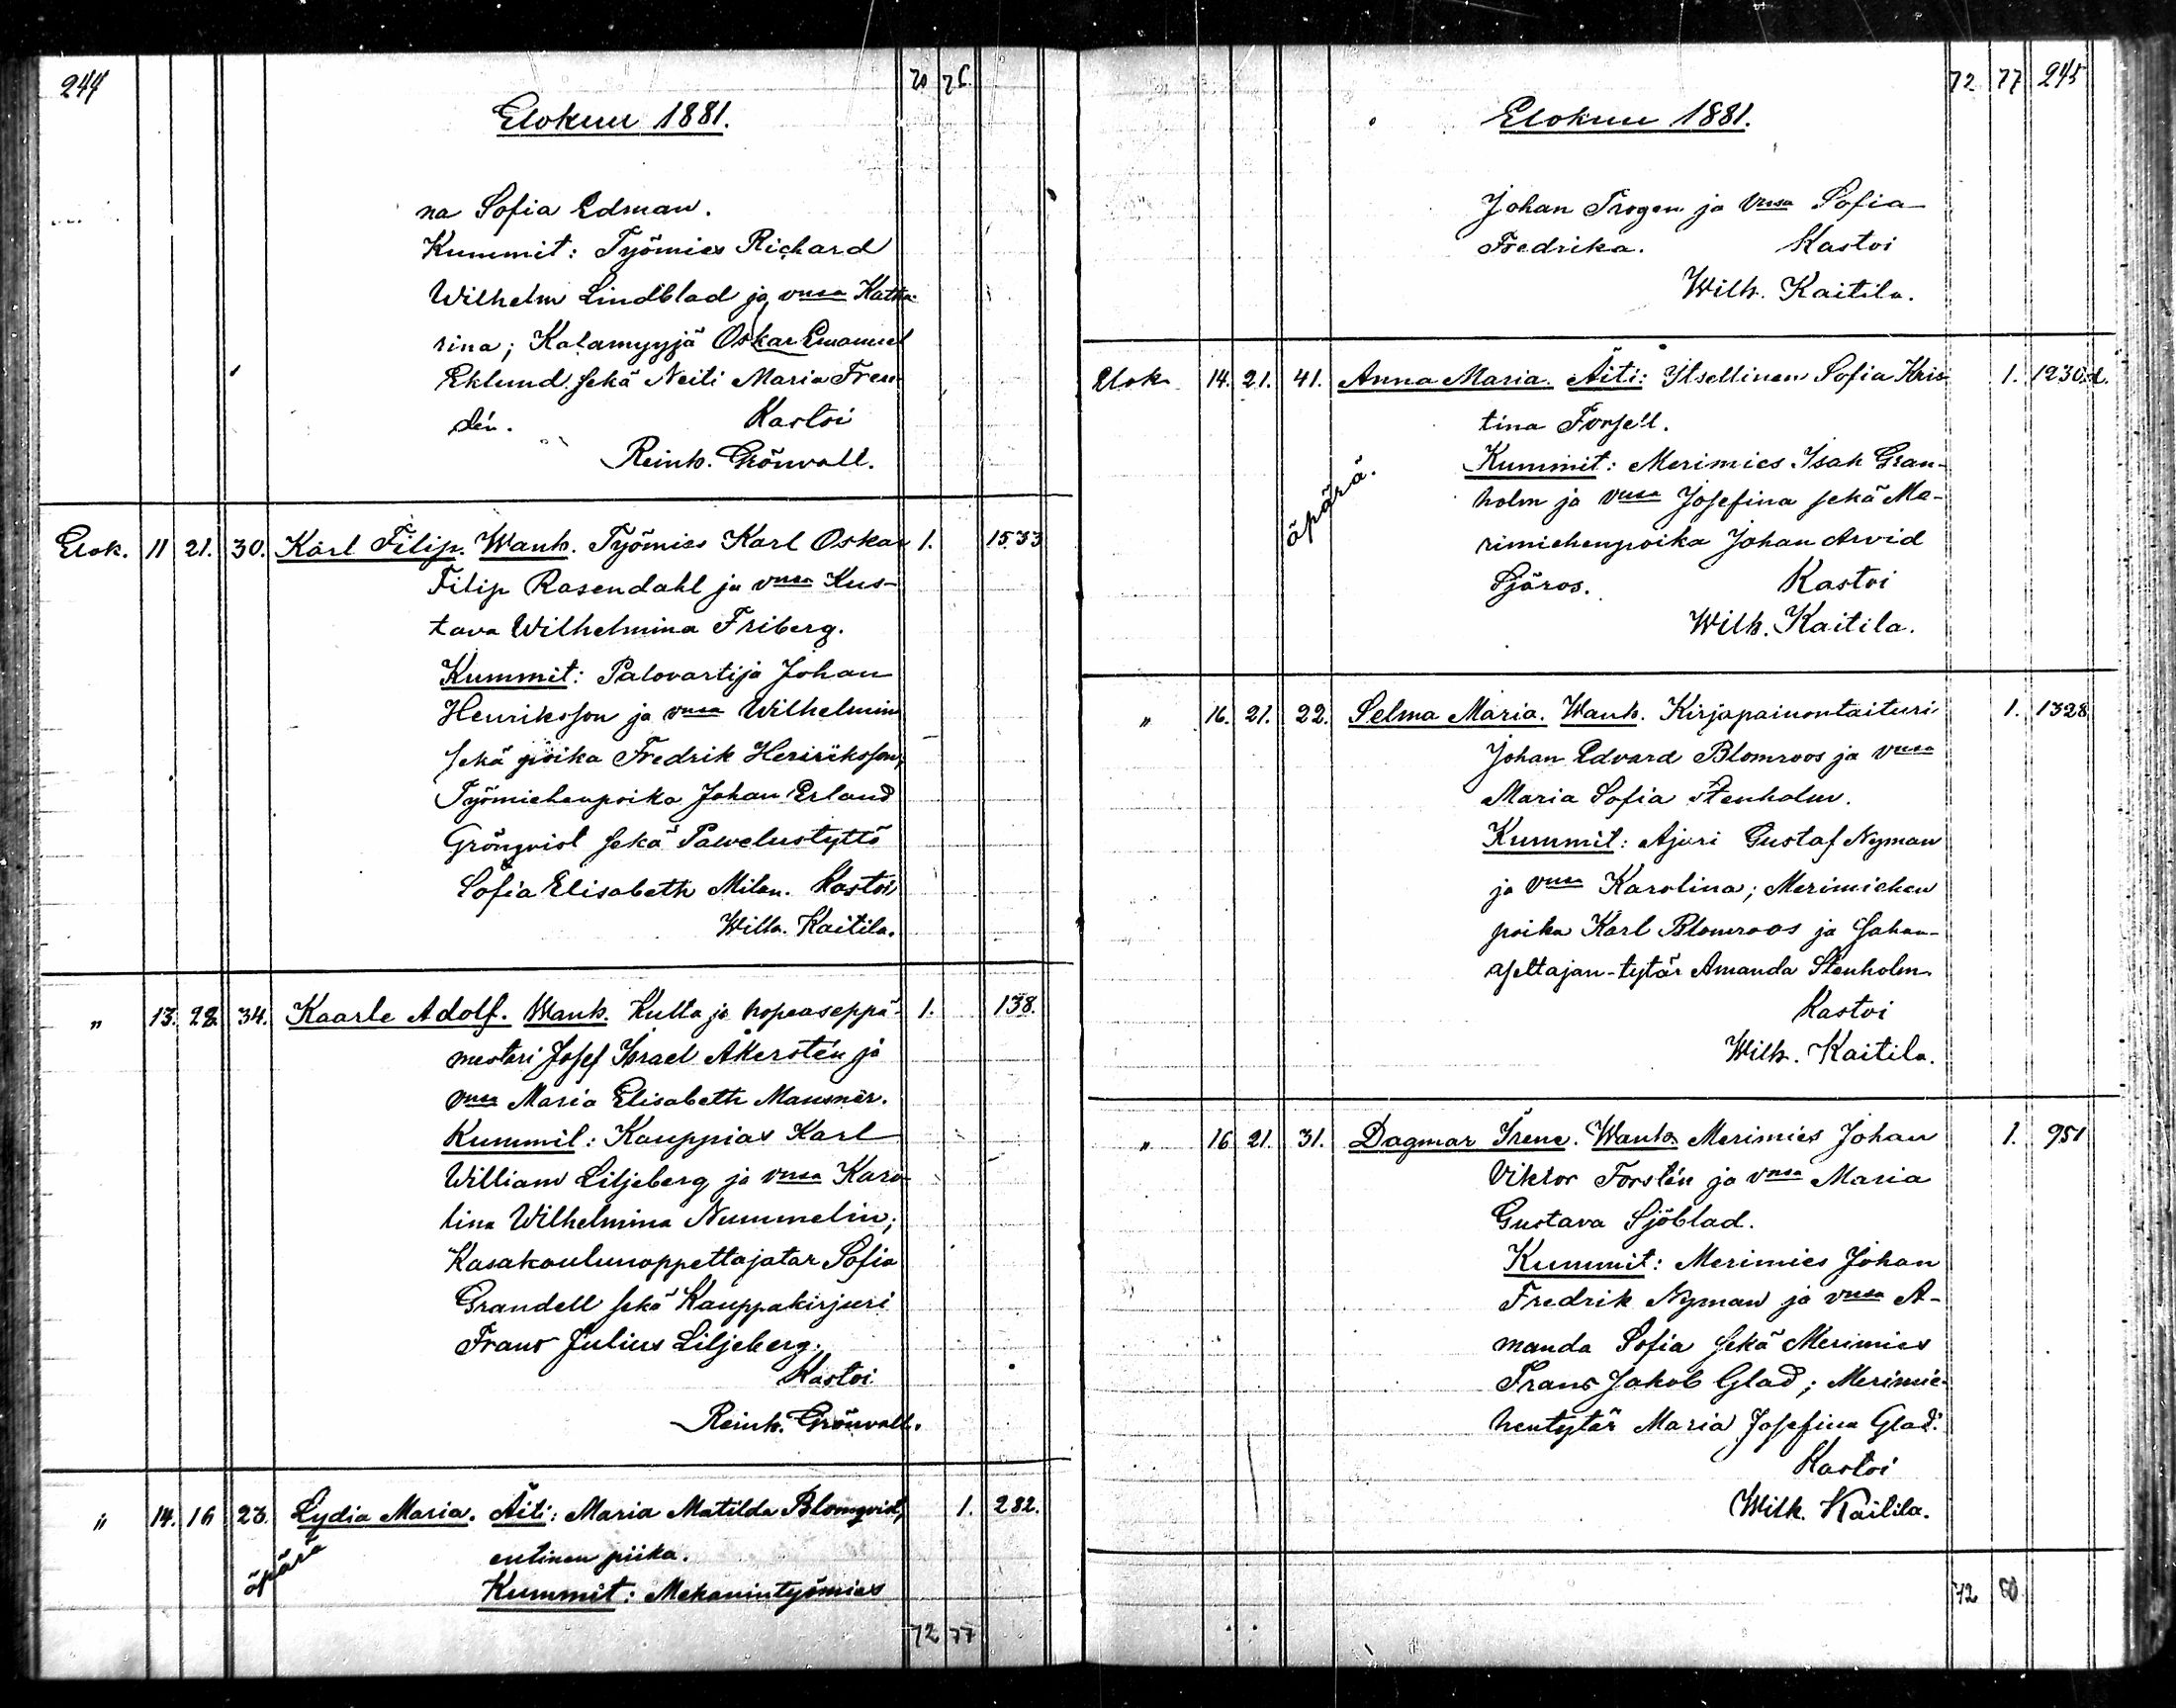 244
70 76
Elokuu 1881.
na Sofia Edman.
Kummit: Työmies Richard
Wilhelm Lindblad ja vmsa Katha-
rina; Kalamyyjä Oskar Emanuel
Eklund sekä Neiti Maria Fren-
dén. Kastoi
Reinh. Grönvall.
Elok. 11 21. 30. Karl Filip. Wanh. Työmies Karl Oskar 1. 1533
Filip Rosendahl ja vmsa Kus-
tava Wilhelmina Friberg.
Kummit: Palovartija Johan
Henriksson ja vmsa Wilhelmina
sekä poika Fredrik Henriksson,
Työmiehenpoika Johan Erland
Grönqvist sekä Palvelustyttö
Sofia Elisabeth Milan. Kastoi
Wilh. Kaitila.
" 13. 28. 34. Kaarle Adolf. Wanh. Kulta ja hopeaseppä- 1. 138.
mestari Josef Israel Åkerstén ja
vmsa Maria Elisabeth Mausnér.
Kummit: Kauppias Karl
William Liljeberg ja vmsa Karo-
lina Wilhelmina Nummelin;
Kasakoulunoppettajatar Sofia
Grandell sekä Kauppakirjuri
Frans Julius Liljeberg.
Kastoi
Reinh. Grönvall.
" 14. 16 23. Lydia Maria. Äiti: Maria Matilda Blomqvist, 1. 282.
äpärä
entinen piika.
Kummit: Mekanintyömies
72 77
72 77 245
Elokuu 1881.
Johan Trogen ja vmsa Sofia
Fredrika. Kastoi
Wilh. Kaitila.
Elok. 14. 21. 41. Anna Maria. Äiti: Itsellinen Sofia Kris- 1. 1230.d.
tina Forsell.
äpärä.
Kummit: Merimies Isak Gran-
holm ja vmsa Josefina sekä Me-
rimiehenpoika Johan Arvid
Sjöros. Kastoi
Wilh. Kaitila.
" 16. 21. 22. Selma Maria. Wanh. Kirjapainontaituri 1. 1328
Johan Edvard Blomroos ja vmsa
Maria Sofia Stenholm.
Kummit: Ajuri Gustaf Nyman
ja vmsa Karolina; Merimiehen
poika Karl Blomroos ja Sahan-
asettajan-tytär Amanda Stenholm.
Kastoi
Wilh. Kaitila.
" 16 21. 31. Dagmar Irene. Wanh. Merimies Johan 1. 951
Viktor Forstén ja vmsa Maria
Gustava Sjöblad.
Kummit: Merimies Johan
Fredrik Nyman ja vmsa A-
manda Sofia sekä Merimies
Frans Jakob Glad; Merimie-
hentytär Maria Josefina Glad.
Kastoi
Wilh. Kaitila.
72 80.